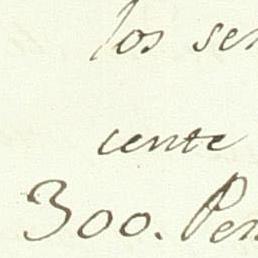 los ser
cente
300. Per